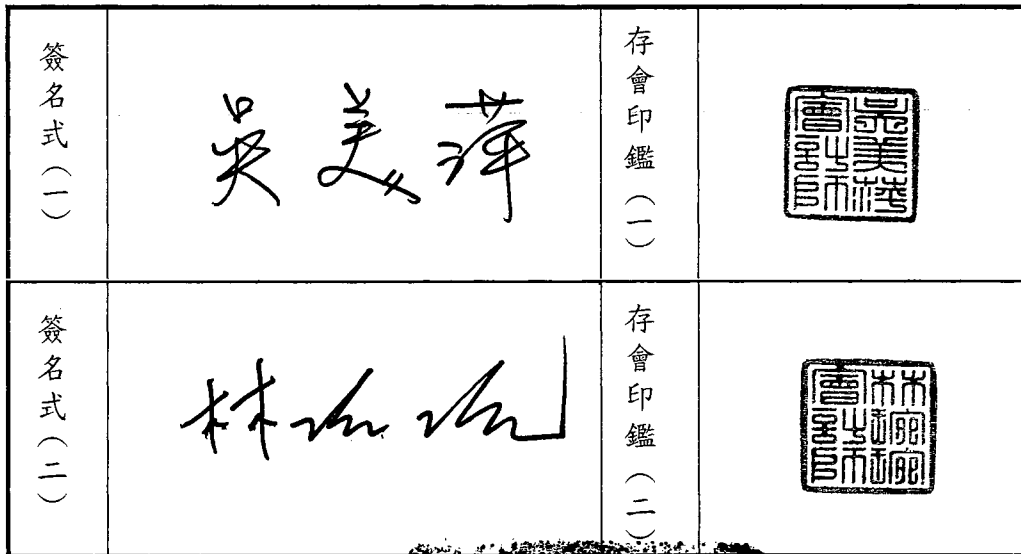 簽名式(一)
吳美萍
存會印鑑(一)
吳美萍會計師
簽名式(二)
林
存會印鑑(二)
林琬琬會計師